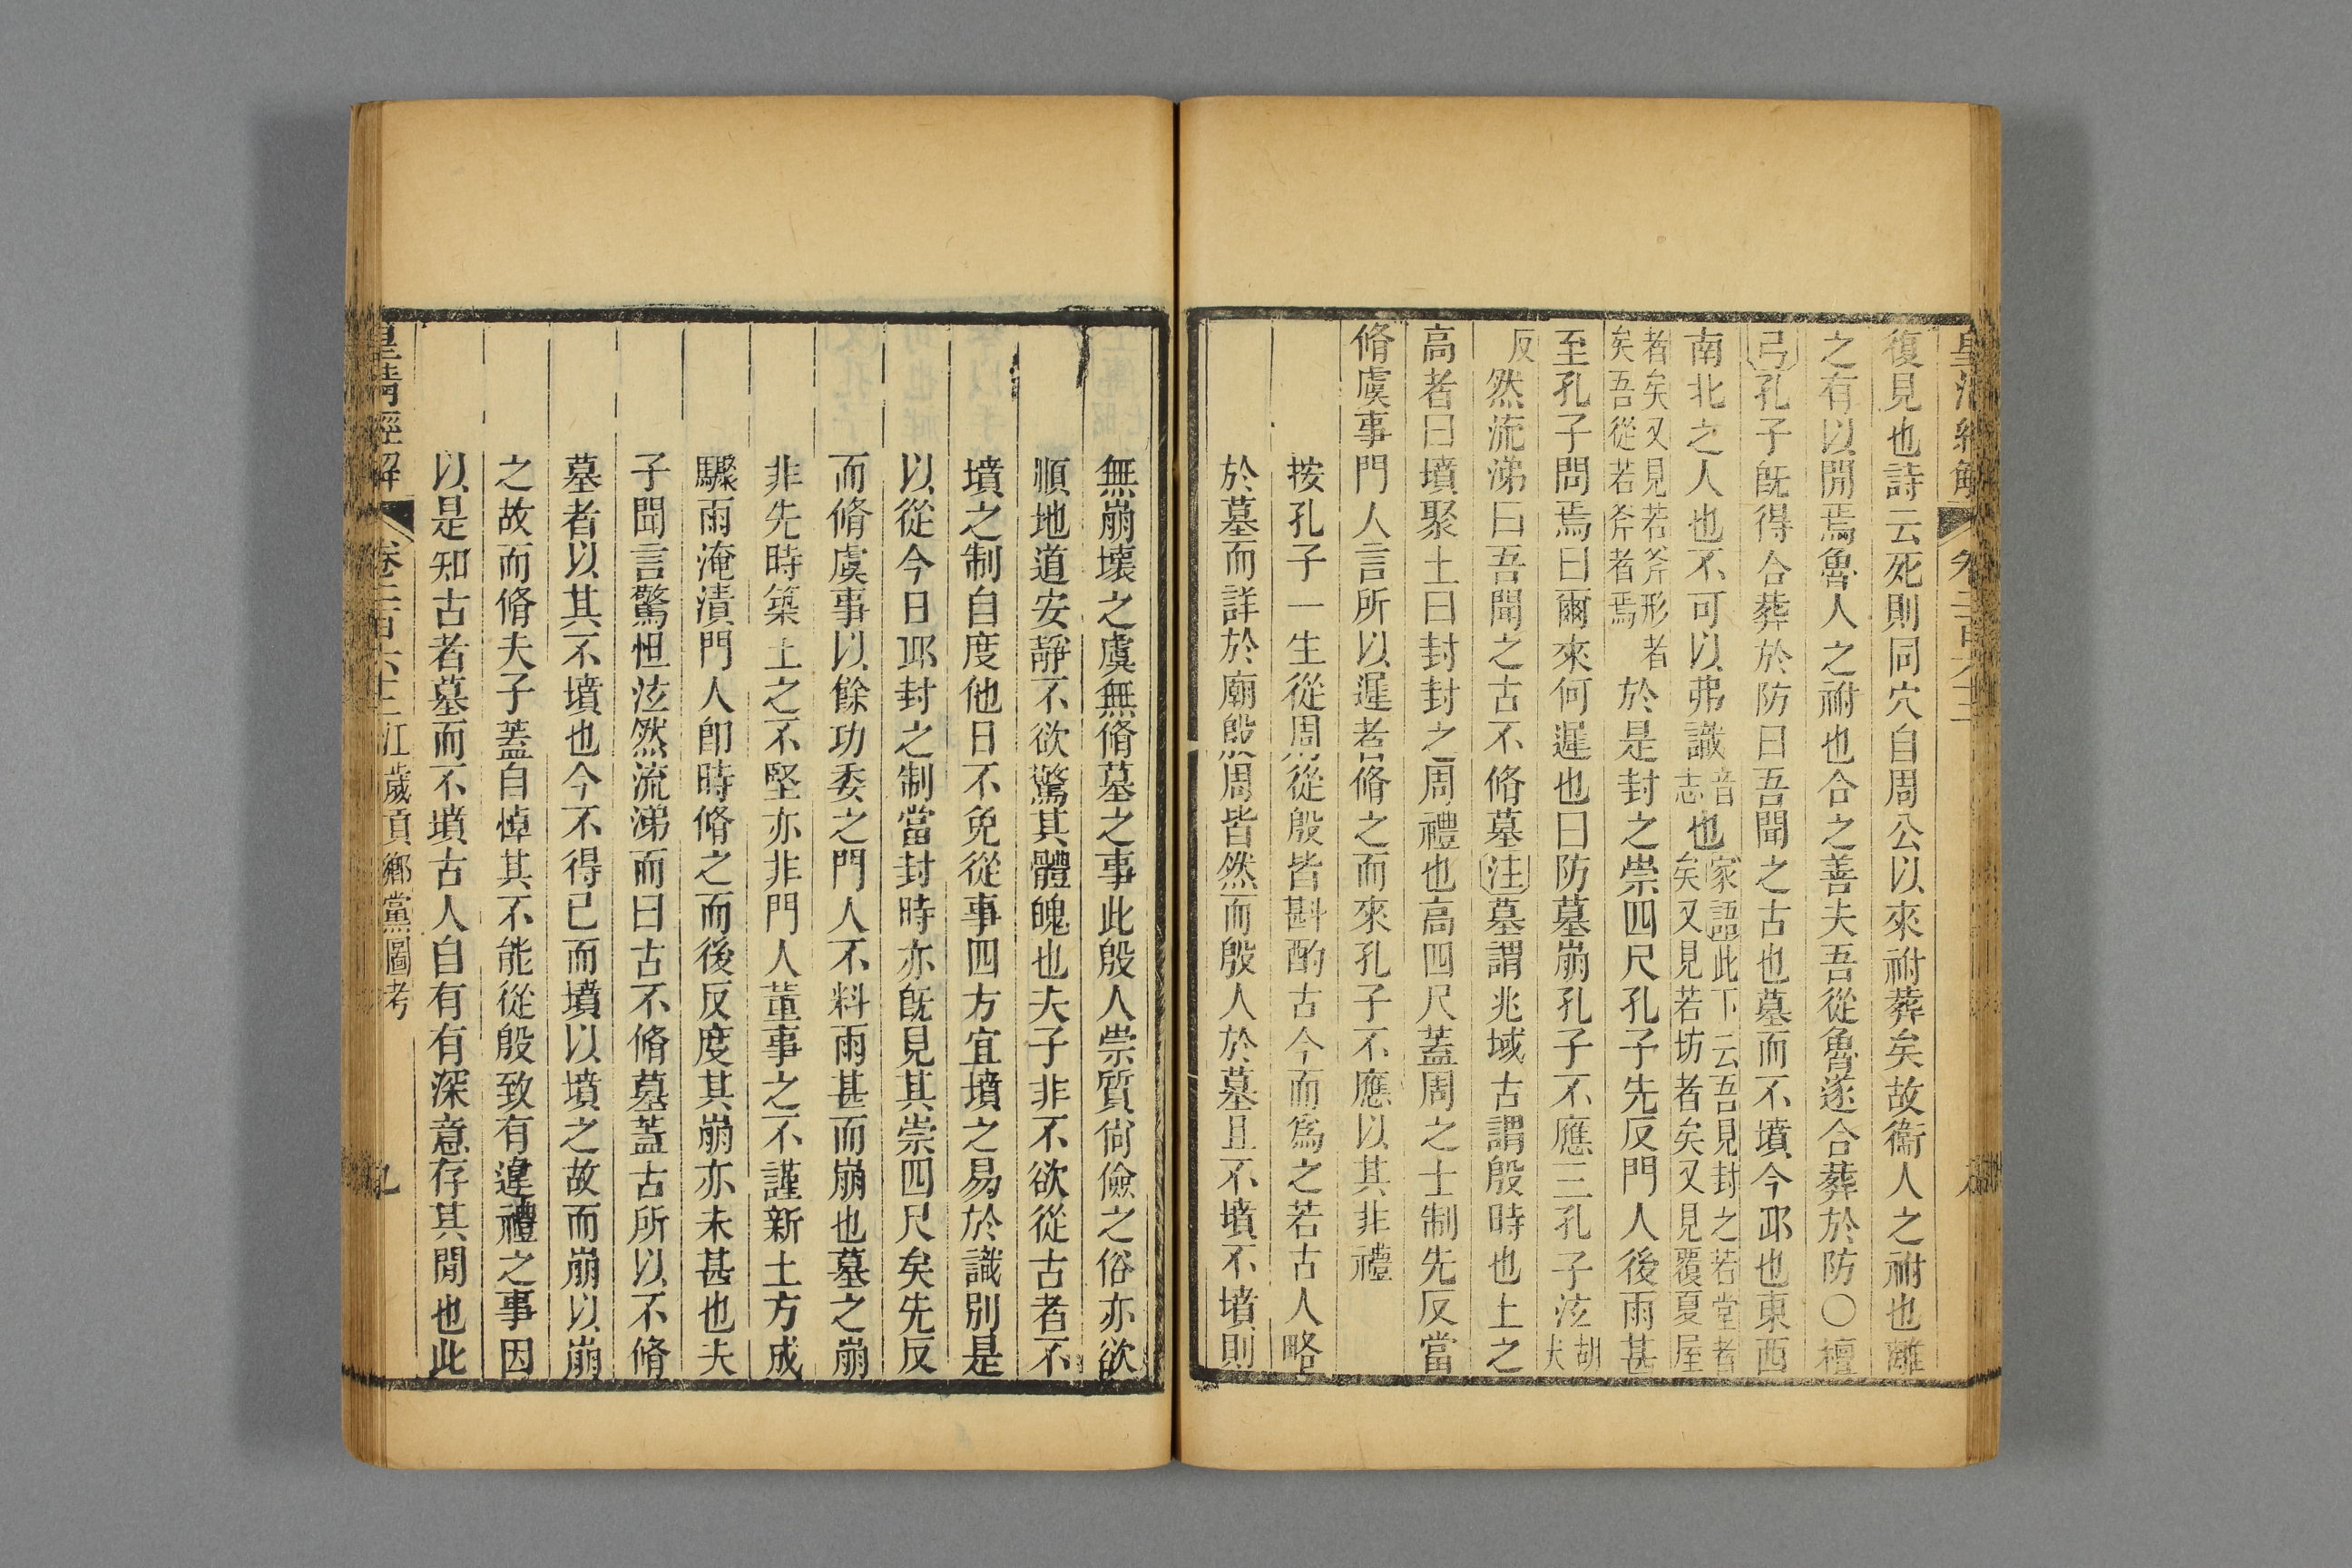 皇清經解
復見也詩云死則同穴自周公以來祔葬矣故衞人之祔也離
之有以閒焉魯人之祔也合之善夫吾從魯遂合葬於防〇檀
弓孔子旣得合葬於防曰吾聞之古也墓而不墳今丘也東西
南北之人也不可以弗識音志也家語此下云吾見封之若堂者矣又見若坊者矣又見覆夏屋
者矣又見若斧形者矣吾從若斧者焉於是封之崇四尺孔子先反門人後雨甚
至孔子問焉曰爾來何遲也曰防墓崩孔子不應三孔子泫胡犬
反然流涕曰吾聞之古不脩墓注墓謂兆域古謂殷時也土之
高者曰墳聚土曰封封之周禮也高四尺蓋周之士制先反當
脩虞事門人言所以遲者脩之而來孔子不應以其非禮
按孔子一生從周從殷皆斟酌古今而爲之若古人略
於墓而詳於廟殷周皆然而殷人於墓且不墳不墳則
無崩壞之虞無脩墓之事此殷人崇質尙儉之俗亦欲
順地道安靜不欲驚其體魄也夫子非不欲從古者不
墳之制自度他日不免從事四方宜墳之易於識別是
以從今日丘封之制當封時亦旣見其崇四尺矣先反
而脩虞事以餘功委之門人不料雨甚而崩也墓之崩
非先時築土之不堅亦非門人董事之不謹新土方成
驟雨淹漬門人卽時脩之而後反度其崩亦未甚也夫
子聞言驚怛泫然流涕而曰古不脩墓蓋古所以不脩
墓者以其不墳也今不得已而墳以墳之故而崩以崩
之故而脩夫子蓋自悼其不能從殷致有違禮之事因
以是知古者墓而不墳古人自有有深意存其閒也此
皇清經解 卷二百六十三 江歲貢鄉黨圖考 九